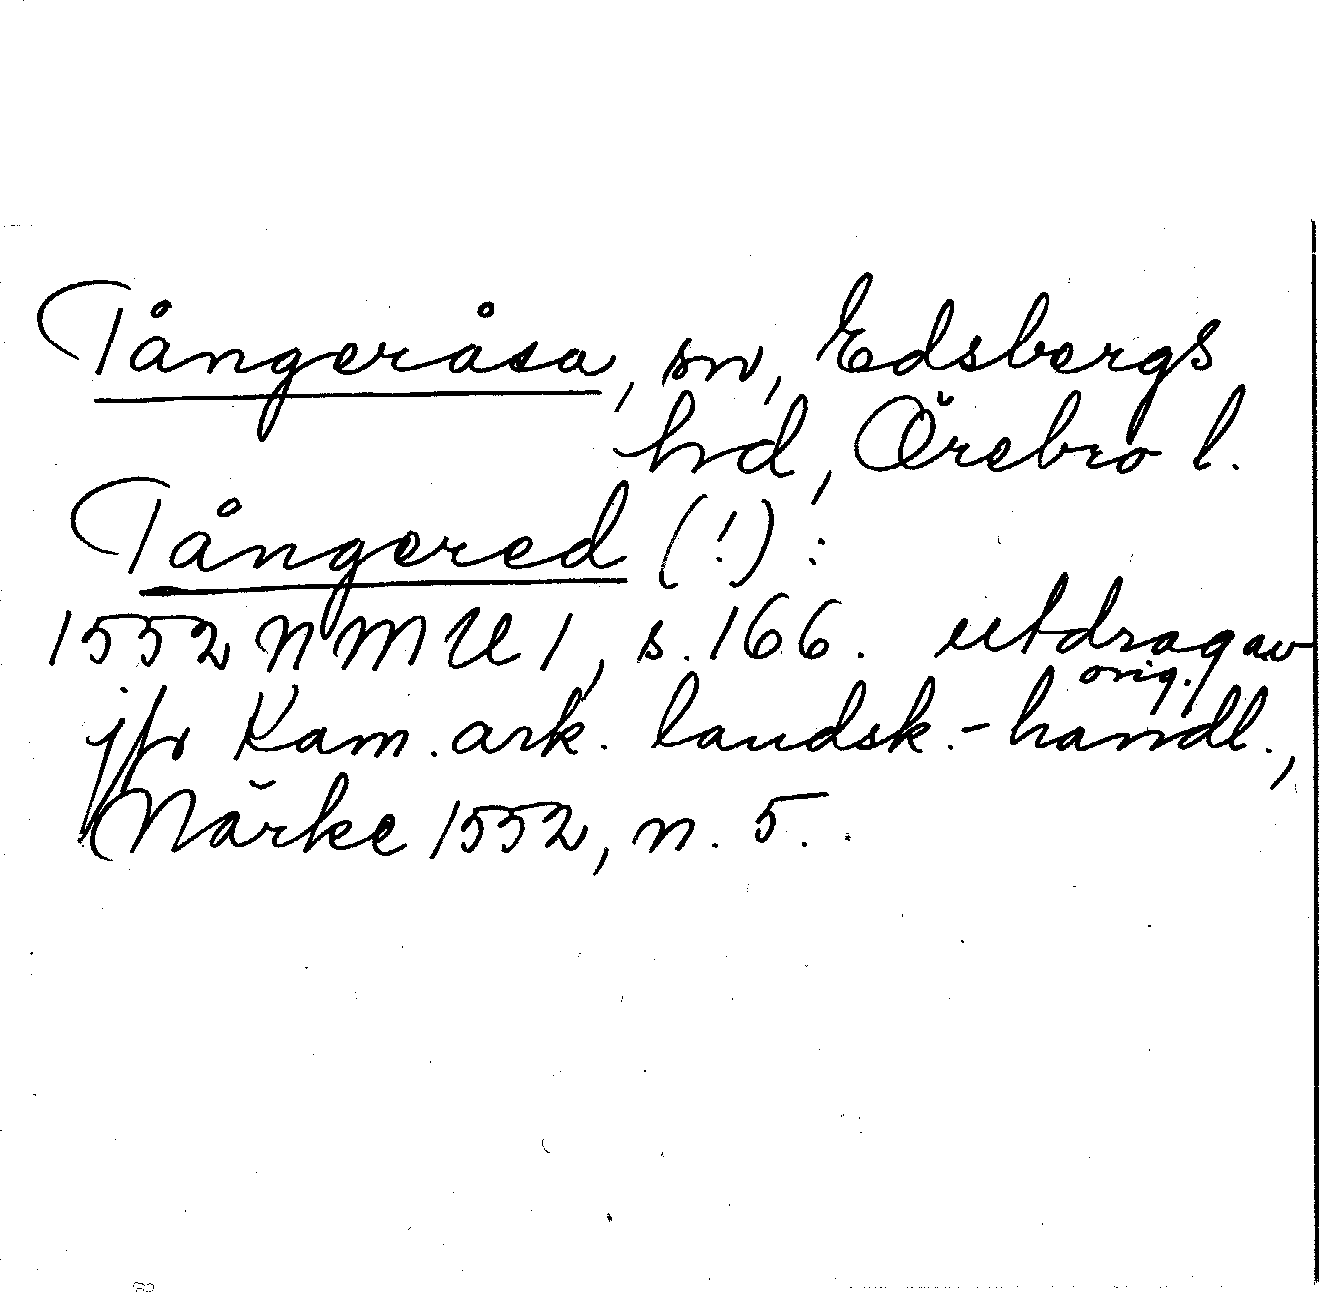 Tångeråsa, sn, Edsbergs
hrd, Örebro l.
Tångered (!):
1552 NMU 1, s. 166. utdrag av
orig.
jfr Kam. ark. landsk.-handl.,
Närke 1552, n. 5.